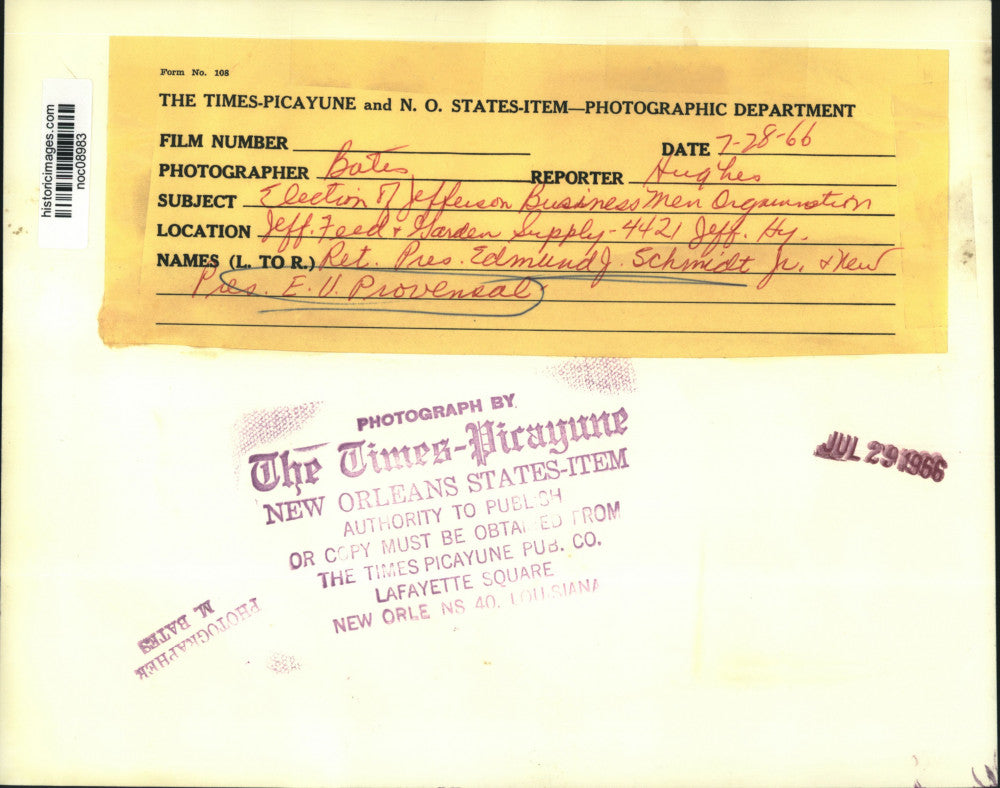 Form No. 108
THE TIMES-PICAYUNE and N. O. STATES-ITEM—PHOTOGRAPHIC DEPARTMENT
FILM NUMBER
DATE 7-28-66
PHOTOGRAPHER Bates
REPORTER Hughes
SUBJECT Election of Jefferson Business Men Organization
LOCATION Jeff. Feed + Garden Supply - 4421 Jeff. Hy.
NAMES (L. TO R.) Ret. Pres. Edmund J. Schmidt Jr. + New
Pres. E. V. Provensal
historicimages.com
noc08983
PHOTOGRAPH BY
The Times-Picayune
NEW ORLEANS STATES-ITEM
AUTHORITY TO PUBLISH
OR COPY MUST BE OBTAINED FROM
THE TIMES PICAYUNE PUB. CO.
LAFAYETTE SQUARE
NEW ORLEANS 40, LOUISIANA
JUL 29 1966
PHOTOGRAPHER
M. BATES